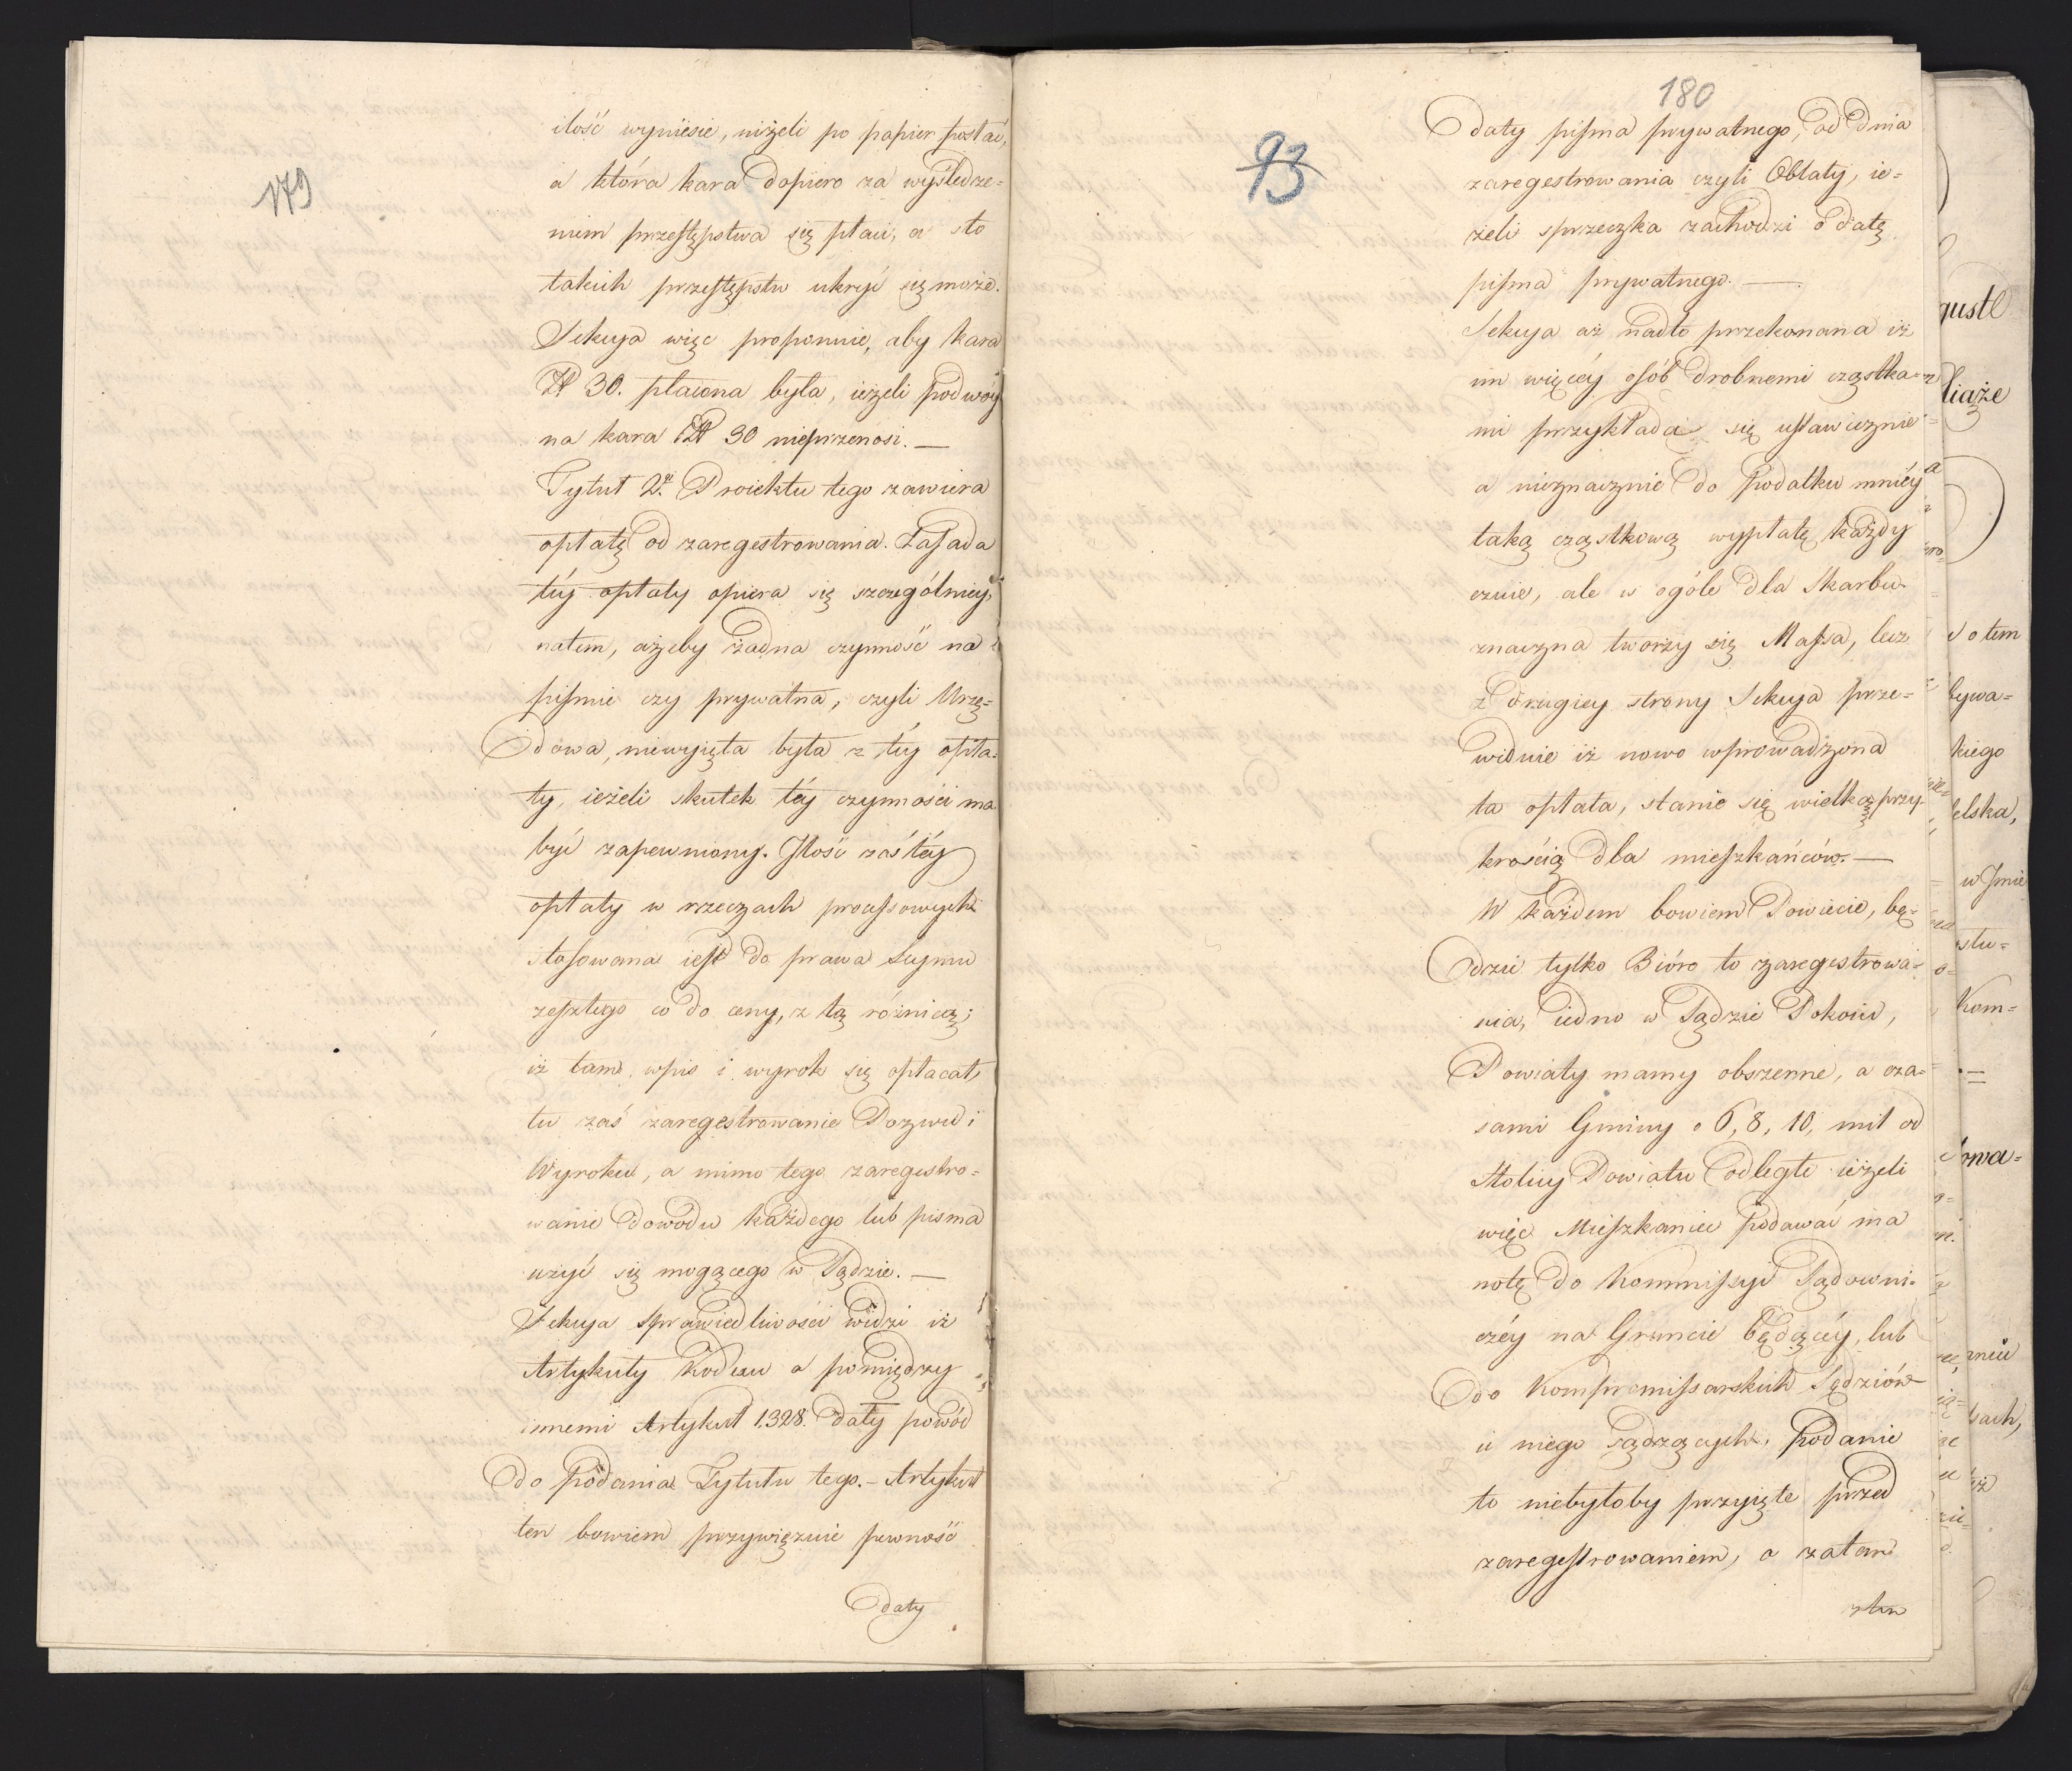 179
ilość wyniesie, niżeli po papier posłać,
a która kara dopiero za wyśledze-
niem przestępstwa się płaci, a sto
takich przestępstw ukryć się może.
Sekcya więc proponuie, aby kara
Zł 30. płacona była, ieżeli podwóy
na kara Zł 30 nieprzenosi. —
Tytuł 2gi Proiektu tego zawiera
opłatę od zaregestrowania. Zasada
téy opłaty opiera się szczególniey,
natem, ażeby żadna czynność na
piśmie czy prywatna, czyli Urzę-
dowa, niewyięta była z téy opła-
ty, ieżeli skutek téy czynności ma
być zapewniony. Ilość zaś téy
opłaty w rzeczach processowych
stosowana iest do prawa Seymu
zeszłego co do ceny, z tą różnicą;
iż tam wpis i wyrok się opłacał,
tu zaś zaregestrowanie Pozwu i
Wyroku, a mimo tego zaregestro-
wanie dowodu każdego lub pisma
użyć się mogącego w Sądzie. —
Sekcya sprawiedliwości widzi iż
Artykuły Kodexu a pomiędzy
innemi Artykuł 1,328. dały powód
do podania Tytułu tego. – Artykuł
ten bowiem przywięzuie pewność
daty
180
93
daty pisma prywatnego, od dnia
zaregestrowania czyli Oblaty, ie-
żeli sprzeczka zachodzi o datę
pisma prywatnego. —
Sekcya aż nadto przekonana iż
im więcéy osób drobnemi cząstka-
mi przykłada się ustawicznie
a nieznacznie do podatku mniéy
taką cząstkową wypłatę każdy
czuie, ale w ogóle dla Skarbu
znaczna tworzy się Massa, lecz
z drugiey strony Sekcya prze-
widuie iż nowo wprowadzona
ta opłata, stanie się wielką przy-
krością dla mieszkańców. —
W każdem bowiem Powiecie, bę-
dzie tylko Bióro to zaregestrowa-
nia, iedno w Sądzie Pokoiu,
Powiaty mamy obszerne, a cza-
sami Gminy o 6, 8, 10, mil od
Stolicy Powiatu odległe ieżeli
więc Mieszkaniec podawać ma
notę do Kommissyi Sądowni-
czéy na Gruncie będącéy, lub
do Kompromissarskich Sędziów
u niego sądzących, podanie
to niebyłoby przyięte przed
zaregestrowaniem, a zatem
gust
liąże
o tem
bywa-
kiego
elska,
w Imie
stu-
Kom-
owa-
aniu
sach,